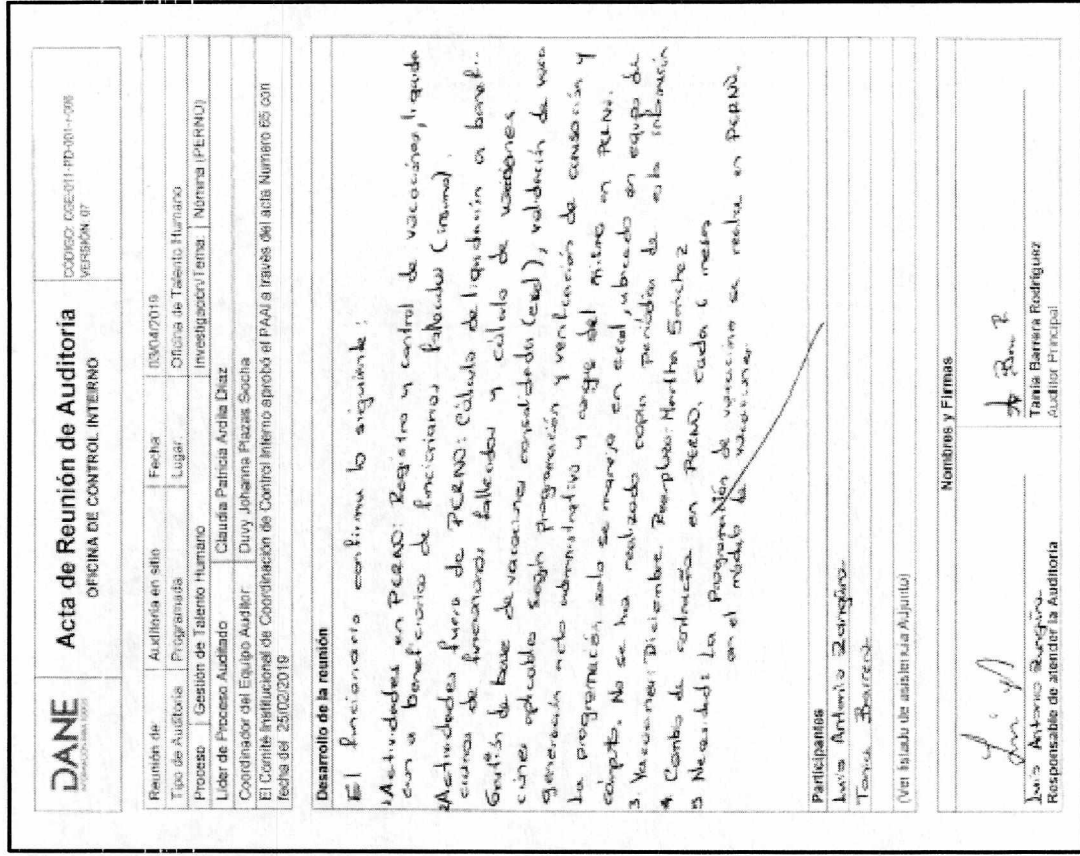 DANE
INFORMACIÓN PARA TODOS
Acta de Reunión de Auditoría
OFICINA DE CONTROL INTERNO
CODIGO: CGE-011-PD-001-F-006
VERSIÓN: 07
Reunión de Auditoría en sitio Fecha 03/04/2019
Tipo de Auditoría Programada Lugar. Oficina de Talento Humano
Proceso Gestión de Talento Humano Investigación/Tema: Nómina (PERNO)
Líder de Proceso Auditado Claudia Patricia Ardila Díaz
Coordinador del Equipo Auditor Duvy Johanna Plazas Socha
El Comité Institucional de Coordinación de Control Interno aprobó el PAAI a través del acta Numero 65 con
fecha del 25/02/2019
Desarrollo de la reunión
El funcionario confirma lo siguiente:
1) Actividades en PERNO: Registro y control de vacaciones, liquida
cion a beneficiarios de funcionarios fallecidos (insumo).
2) Actividades fuera de PERNO: Cálculo de liquidación a benef..
ciarios de funcionarios fallecidos y cálculo de vacaciones.
Gestión de base de vacaciones consolidada (excel), validación de vaca
ciones aplicable según programación y verificación de causación y
generación acto administrativo y cargue del mismo en PERNO.
La programación solo se maneja en excel, ubicado en equipo de
cómputo. No se ha realizado copia periódica de esta información
3. Vacaciones: Diciembre. Reemplazo: Martha Sanchez
4. Cambio de contraseña en PERNO, cada 6 meses
5 Necesidad: La Programación de vacaciones se realice en PERNO,
en el módulo de vacaciones.
Participantes
Luis Antonio Zangüra.
Tania Barrera
(Ver listado de asistencia Adjunto)
Nombres y Firmas
Luis Antonio
Responsable de atender la Auditoria
Tania Barrera Rodríguez
Auditor Principal